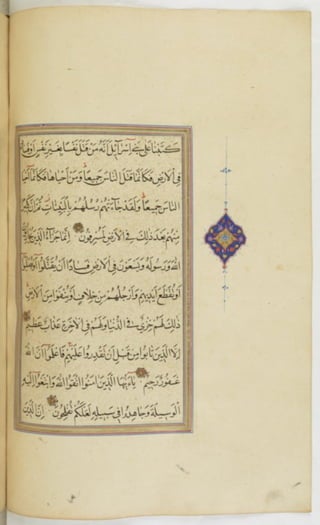 كَتَبْنَا عَلَىٰ بَنِي إِسْرَائِيلَ أَنَّهُ مَنْ قَتَلَ نَفْسًا بِغَيْرِ نَفْسٍ أَوْ فَسَادٍ
فِي الْأَرْضِ فَكَأَنَّمَا قَتَلَ النَّاسَ جَمِيعًا وَمَنْ أَحْيَاهَا فَكَأَنَّمَا أَحْيَا
النَّاسَ جَمِيعًا وَلَقَدْ جَاءَتْهُمْ رُسُلُنَا بِالْبَيِّنَاتِ ثُمَّ إِنَّ كَثِيرًا
مِنْهُمْ بَعْدَ ذَٰلِكَ فِي الْأَرْضِ لَمُسْرِفُونَ إِنَّمَا جَزَاءُ الَّذِينَ يُحَارِبُونَ
اللَّهَ وَرَسُولَهُ وَيَسْعَوْنَ فِي الْأَرْضِ فَسَادًا أَنْ يُقَتَّلُوا أَوْ يُصَلَّبُوا
أَوْ تُقَطَّعَ أَيْدِيهِمْ وَأَرْجُلُهُمْ مِنْ خِلَافٍ أَوْ يُنْفَوْا مِنَ الْأَرْضِ
ذَٰلِكَ لَهُمْ خِزْيٌ فِي الدُّنْيَا وَلَهُمْ فِي الْآخِرَةِ عَذَابٌ عَظِيمٌ
إِلَّا الَّذِينَ تَابُوا مِنْ قَبْلِ أَنْ تَقْدِرُوا عَلَيْهِمْ فَاعْلَمُوا أَنَّ اللَّهَ
غَفُورٌ رَحِيمٌ يَا أَيُّهَا الَّذِينَ آمَنُوا اتَّقُوا اللَّهَ وَابْتَغُوا إِلَيْهِ
الْوَسِيلَةَ وَجَاهِدُوا فِي سَبِيلِهِ لَعَلَّكُمْ تُفْلِحُونَ إِنَّ الَّذِينَ